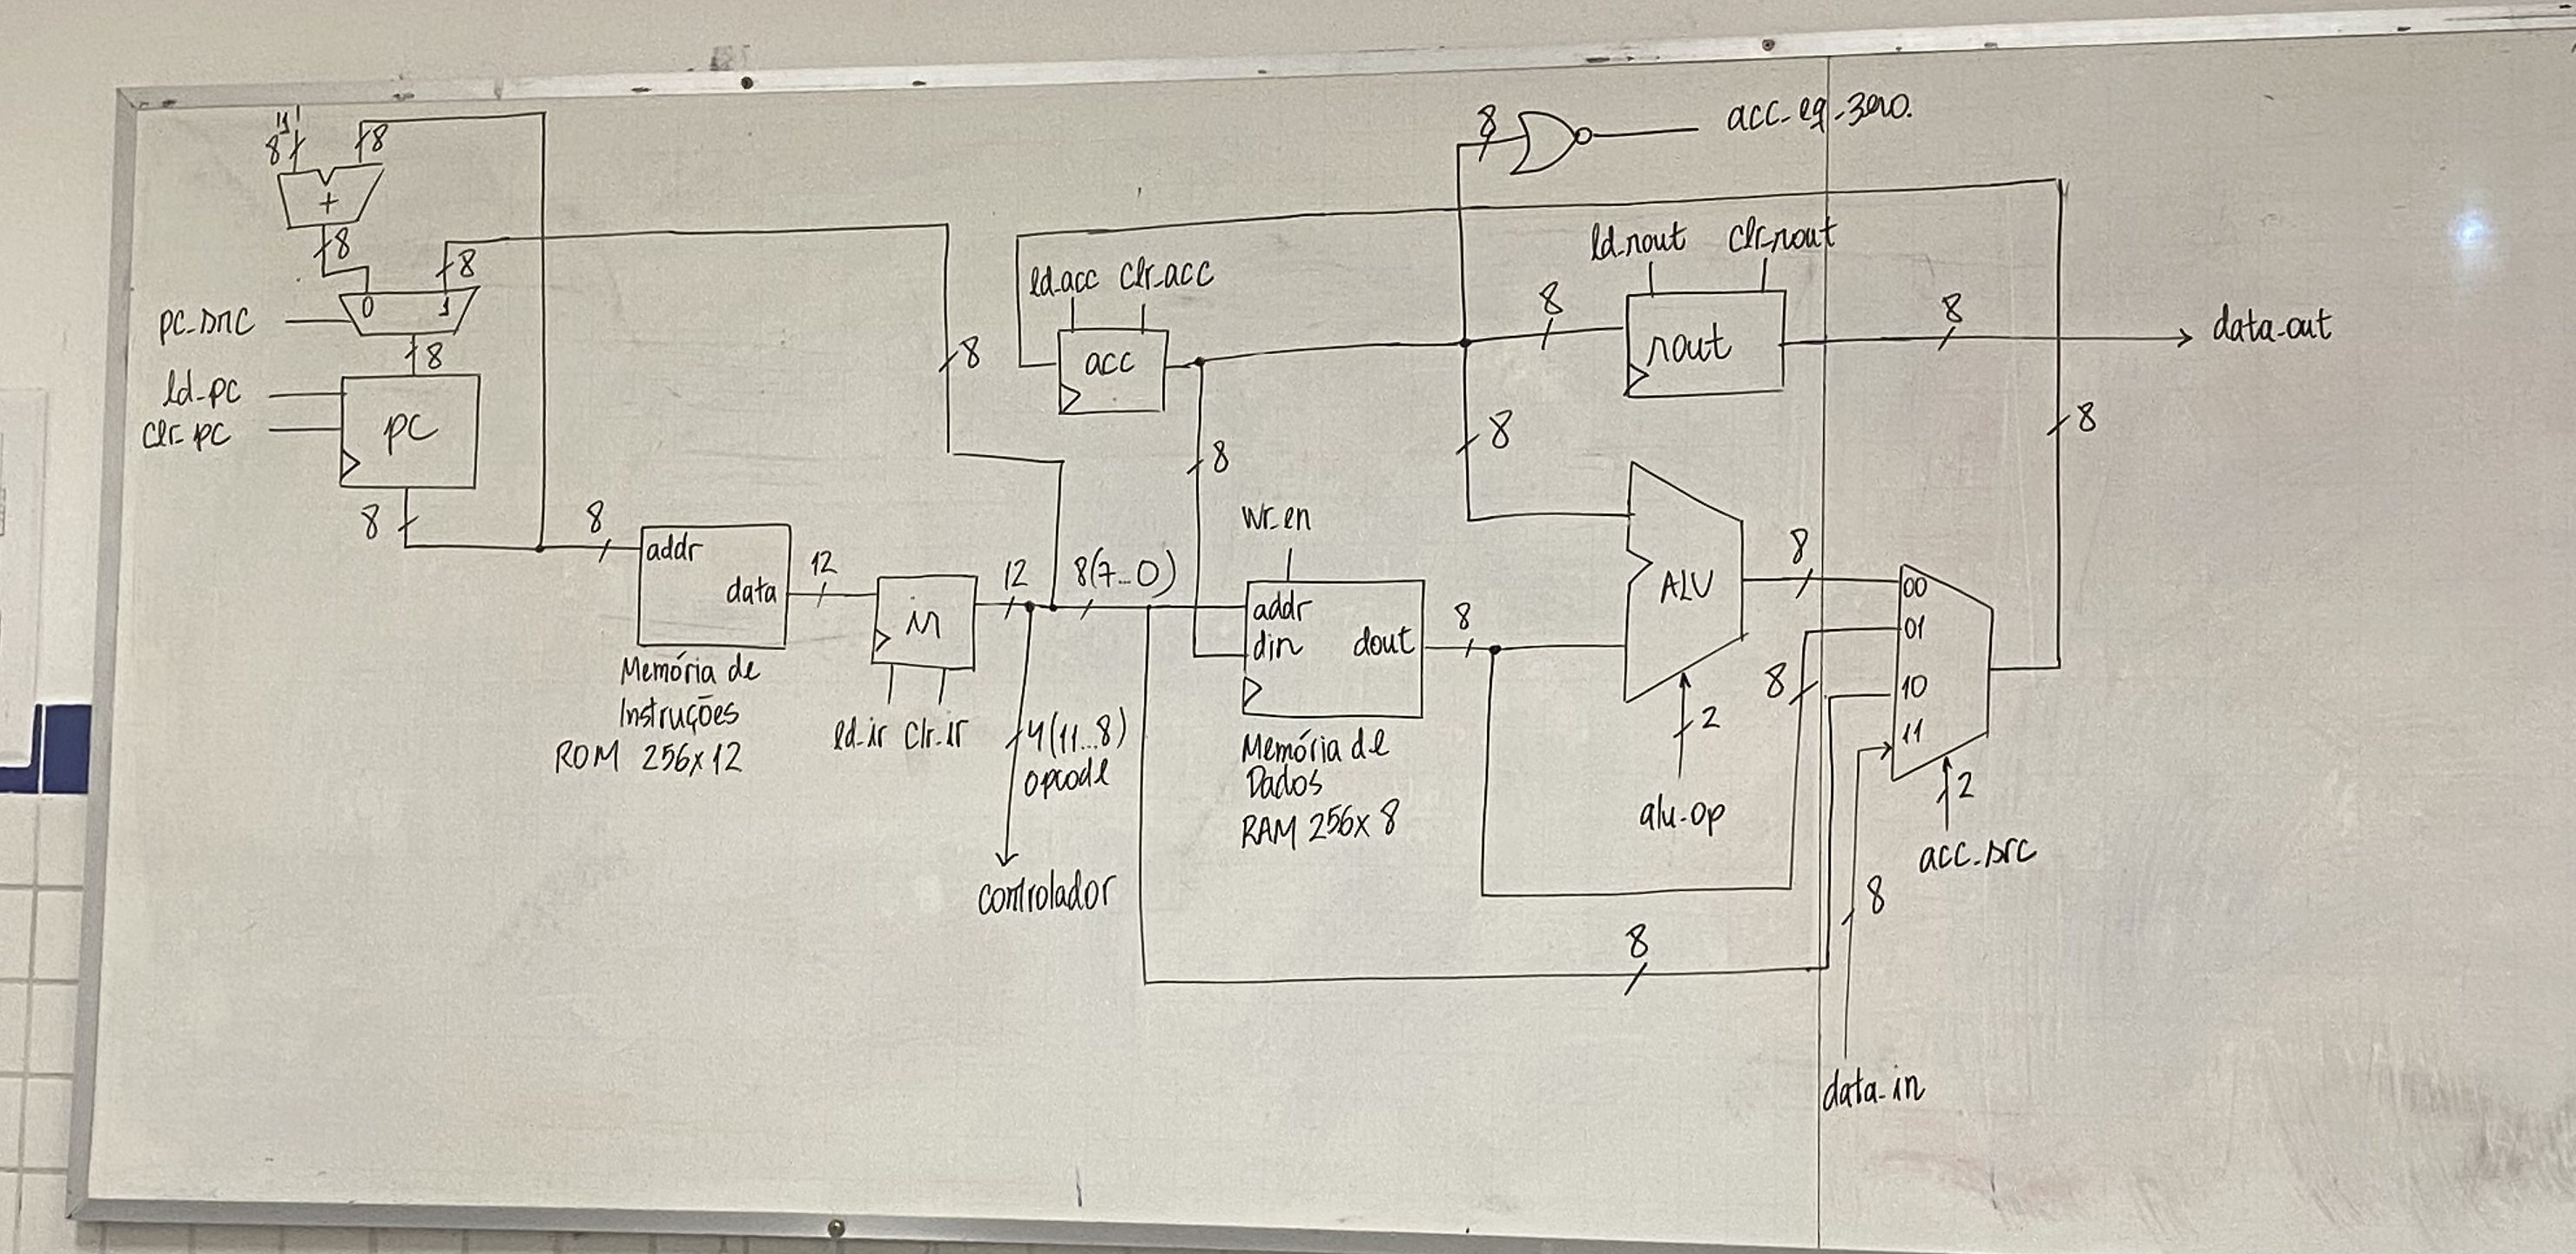 "1"
8
8
+
8
8
0 1
pc_src
8
ld_pc
clr_pc
pc
8
8
addr
data
Memória de
Instruções
ROM 256x12
12
ir
ld_ir clr_ir
12
8(7...0)
4(11...8)
opcode
controlador
8
ld_acc clr_acc
acc
8
wr_en
addr
din
dout
Memória de
Dados
RAM 256x8
8
8
acc_eq_zero.
ld_rout clr_rout
8
rout
8
data_out
8
ALU
2
alu_op
8
8
00
01
10
11
2
acc_src
8
8
8
data_in